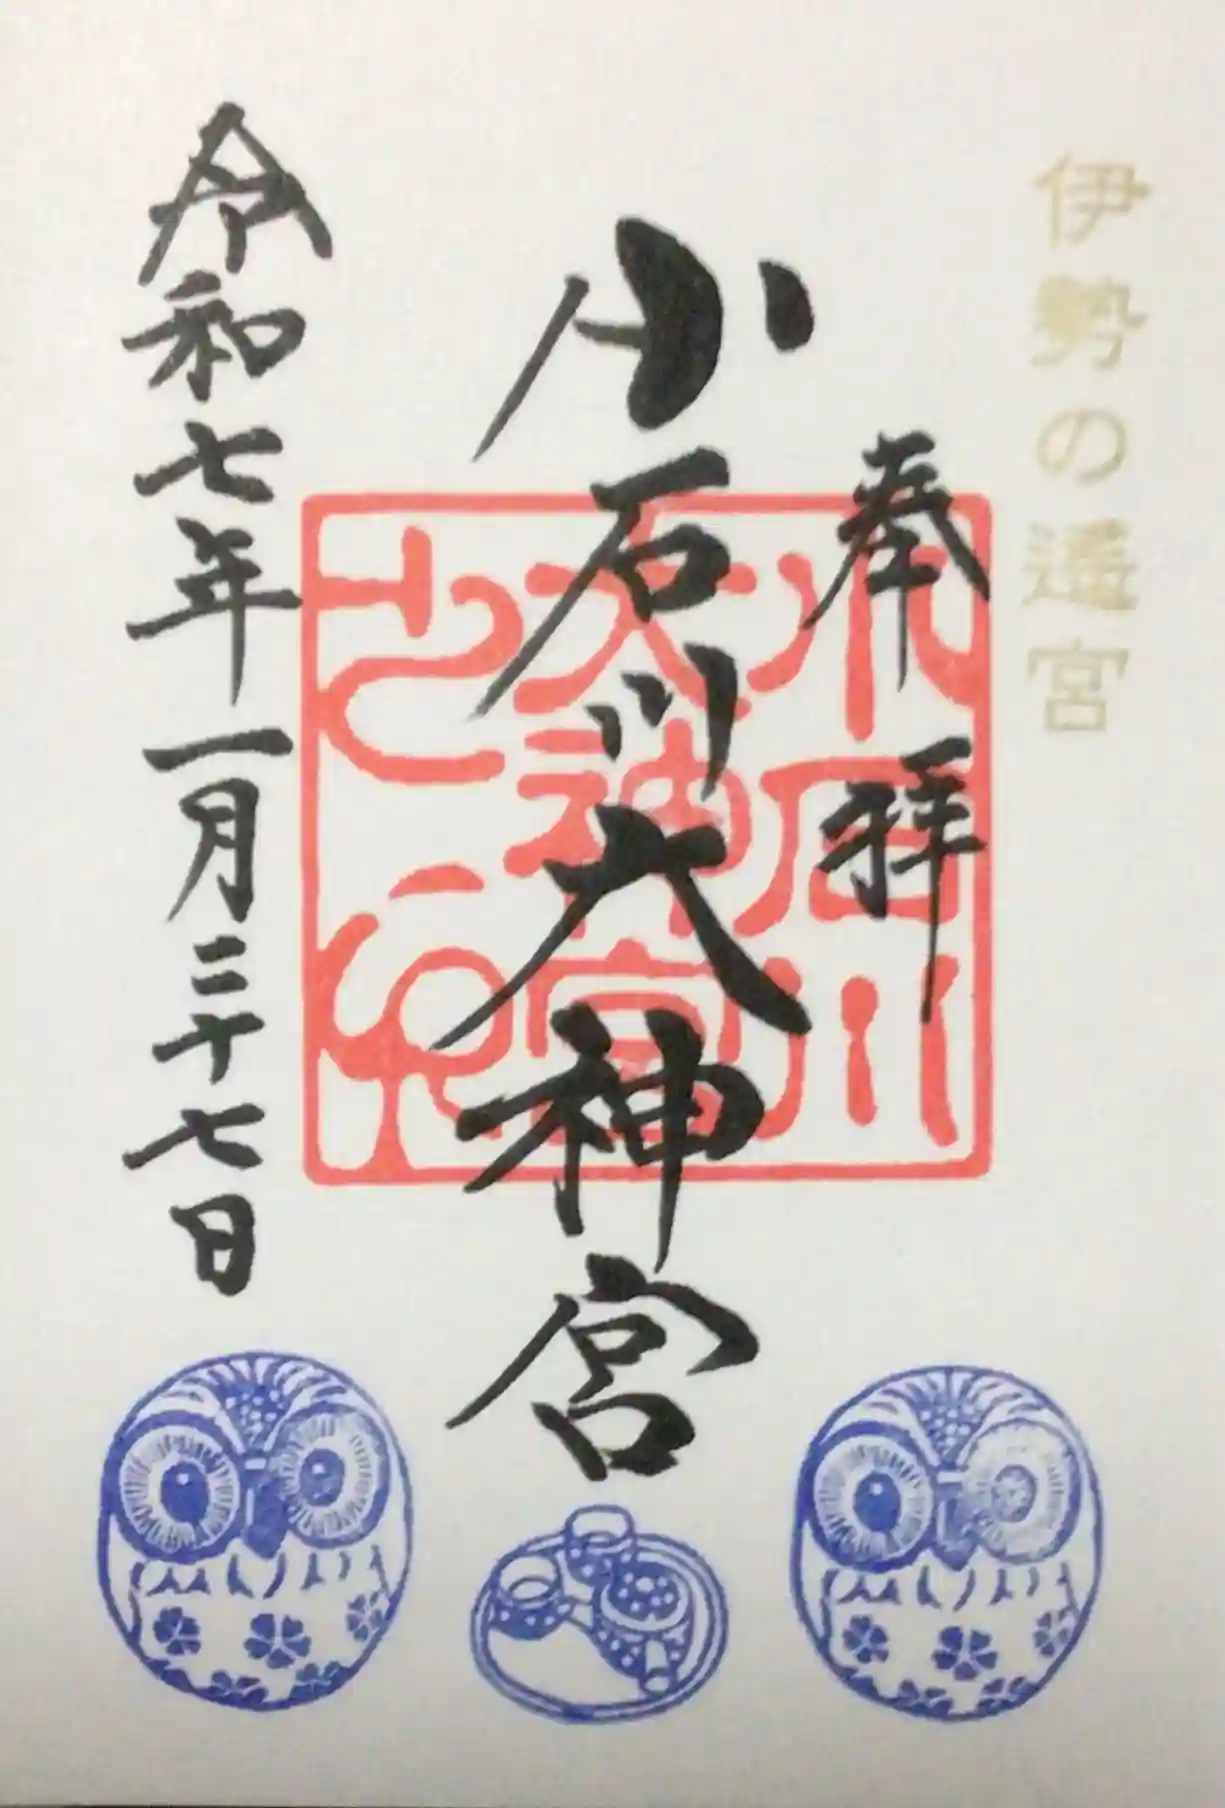 伊勢の遥宮
奉拝
小石川大神宮
小石川大神宮之印
令和七年一月二十七日